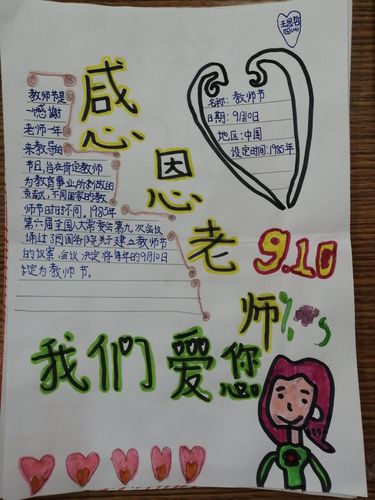 感恩老师
名称：教师节
日期：9月10日
地区：中国
设定时间：1985年
教师节是
感谢
老师一年
来教导的
节日，旨在肯定教师
为教育事业所做的
贡献，不同国家的教
师节时时不同，1985年
第六届全国人大常委会第九次会议
通过了国务院关于建立教师节
的议案，会议决定将每年的9月10日
定为教师节。
9.10
我们爱您